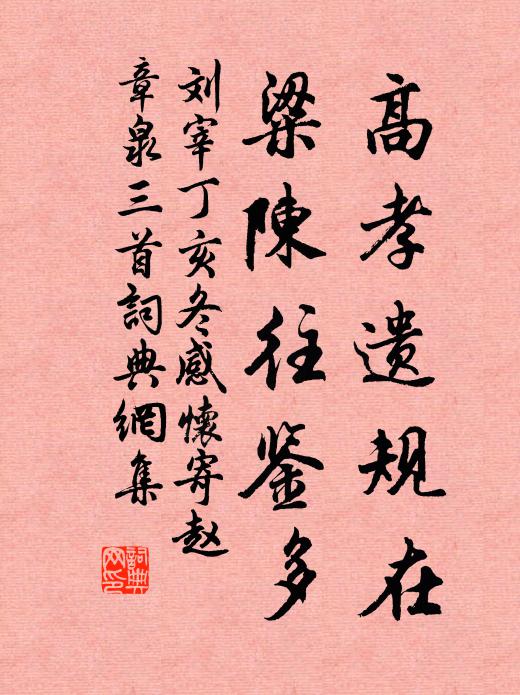 高孝遗规在
梁陳往鉴多
刘宰丁亥冬感懷寄赵
章泉三首詞典網集
詞典
网印